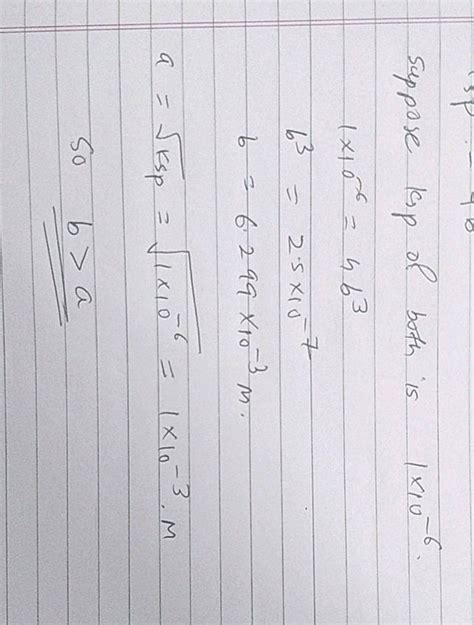 suppose ksp of both is 1×10⁻⁶.
1×10⁻⁶ = 4b³
b³ = 2.5×10⁻⁷
b = 6.299×10⁻³ M.
a = √ksp = √1×10⁻⁶ = 1×10⁻³.M
so b > a